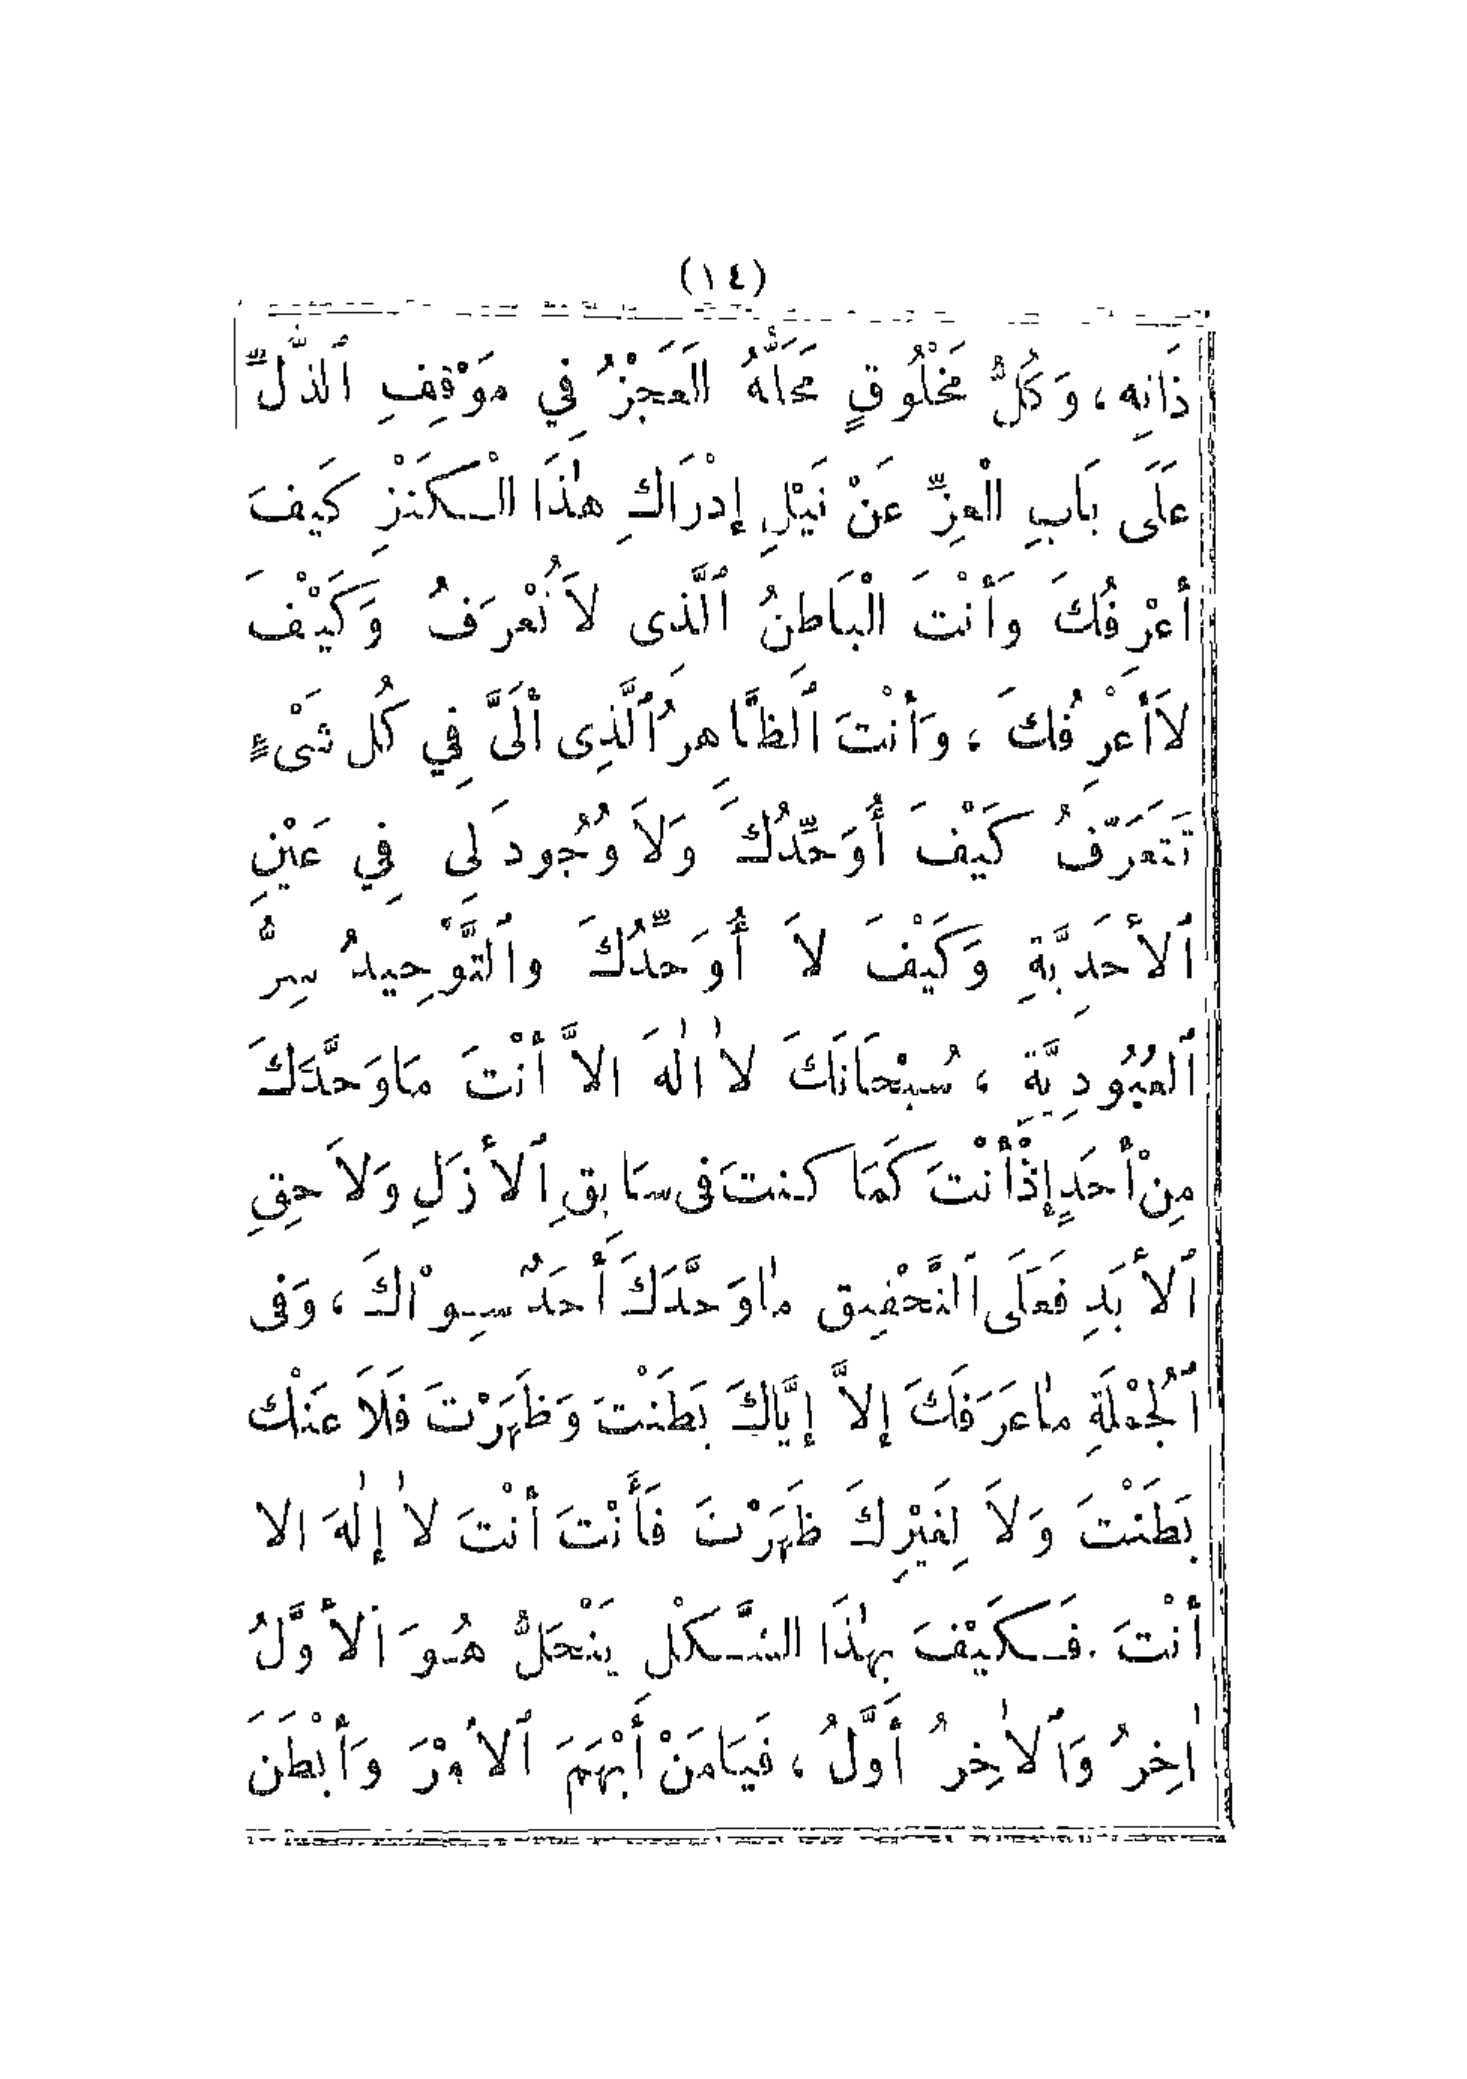 (١٤)
ذَاتِهِ، وَكُلُّ مَخْلُوقٍ مَحَلُّهُ الْعَجْزُ فِي مَوْقِفِ ٱلذُّلِّ
عَلَى بَابِ الْعِزِّ عَنْ نَيْلِ إِدْرَاكِ هٰذَا الْكَنْزِ كَيفَ
أَعْرِفُكَ وَأَنْتَ الْبَاطِنُ ٱلَّذى لاَ تُعْرَفُ وَكَيْفَ
لاَ أَعْرِفُكَ، وَأَنْتَ ٱلظَّاهِرُ ٱلَّذِى أَلَىَّ فِي كُلِ شَىْءٍ
تَتَعَرَّفُ كَيْفَ أُوَحِّدُكَ وَلاَ وُجُودَ لِى فِي عَيْنِ
ٱلأَحَدِيَّةِ وَكَيْفَ لاَ أُوَحِّدُكَ وٱلتَّوْحِيدُ سِرُّ
ٱلعُبُودِيَّةِ، سُبْحَانَكَ لاٰ الٰهَ الاَّ أَنْتَ مَاوَحَّدَكَ
مِنْ أَحَدٍ إِذْ أَنْتَ كَمَا كنتَ فى سَابِقِ ٱلأَزَلِ وَلاَحِقِ
ٱلأَبَدِ فَعَلَى ٱلتَّحْقِيق مٰاوَحَّدَكَ أَحَدٌ سِوٰاكَ، وَفى
ٱلْجُمْلَةِ مٰاعَرَفَكَ إِلاَّ إِيَّاكَ بَطَنْتَ وَظَهَرْتَ فَلاَ عَنْكَ
بَطَنْتَ وَلاَ لِغَيْرِكَ ظَهَرْتَ فَأَنْتَ أَنْتَ لاٰ إِلٰهَ الا
أَنْتَ. فَكَيْفَ بِهٰذَا الشَّكْلِ يَنْحَلُّ هُوَ ٱلأَوَّلُ
اٰخِرُ وَٱلاٰخِرُ أَوَّلُ، فَيَامَنْ أَبْهَمَ ٱلأَمْرَ وَأَبْطَنَ